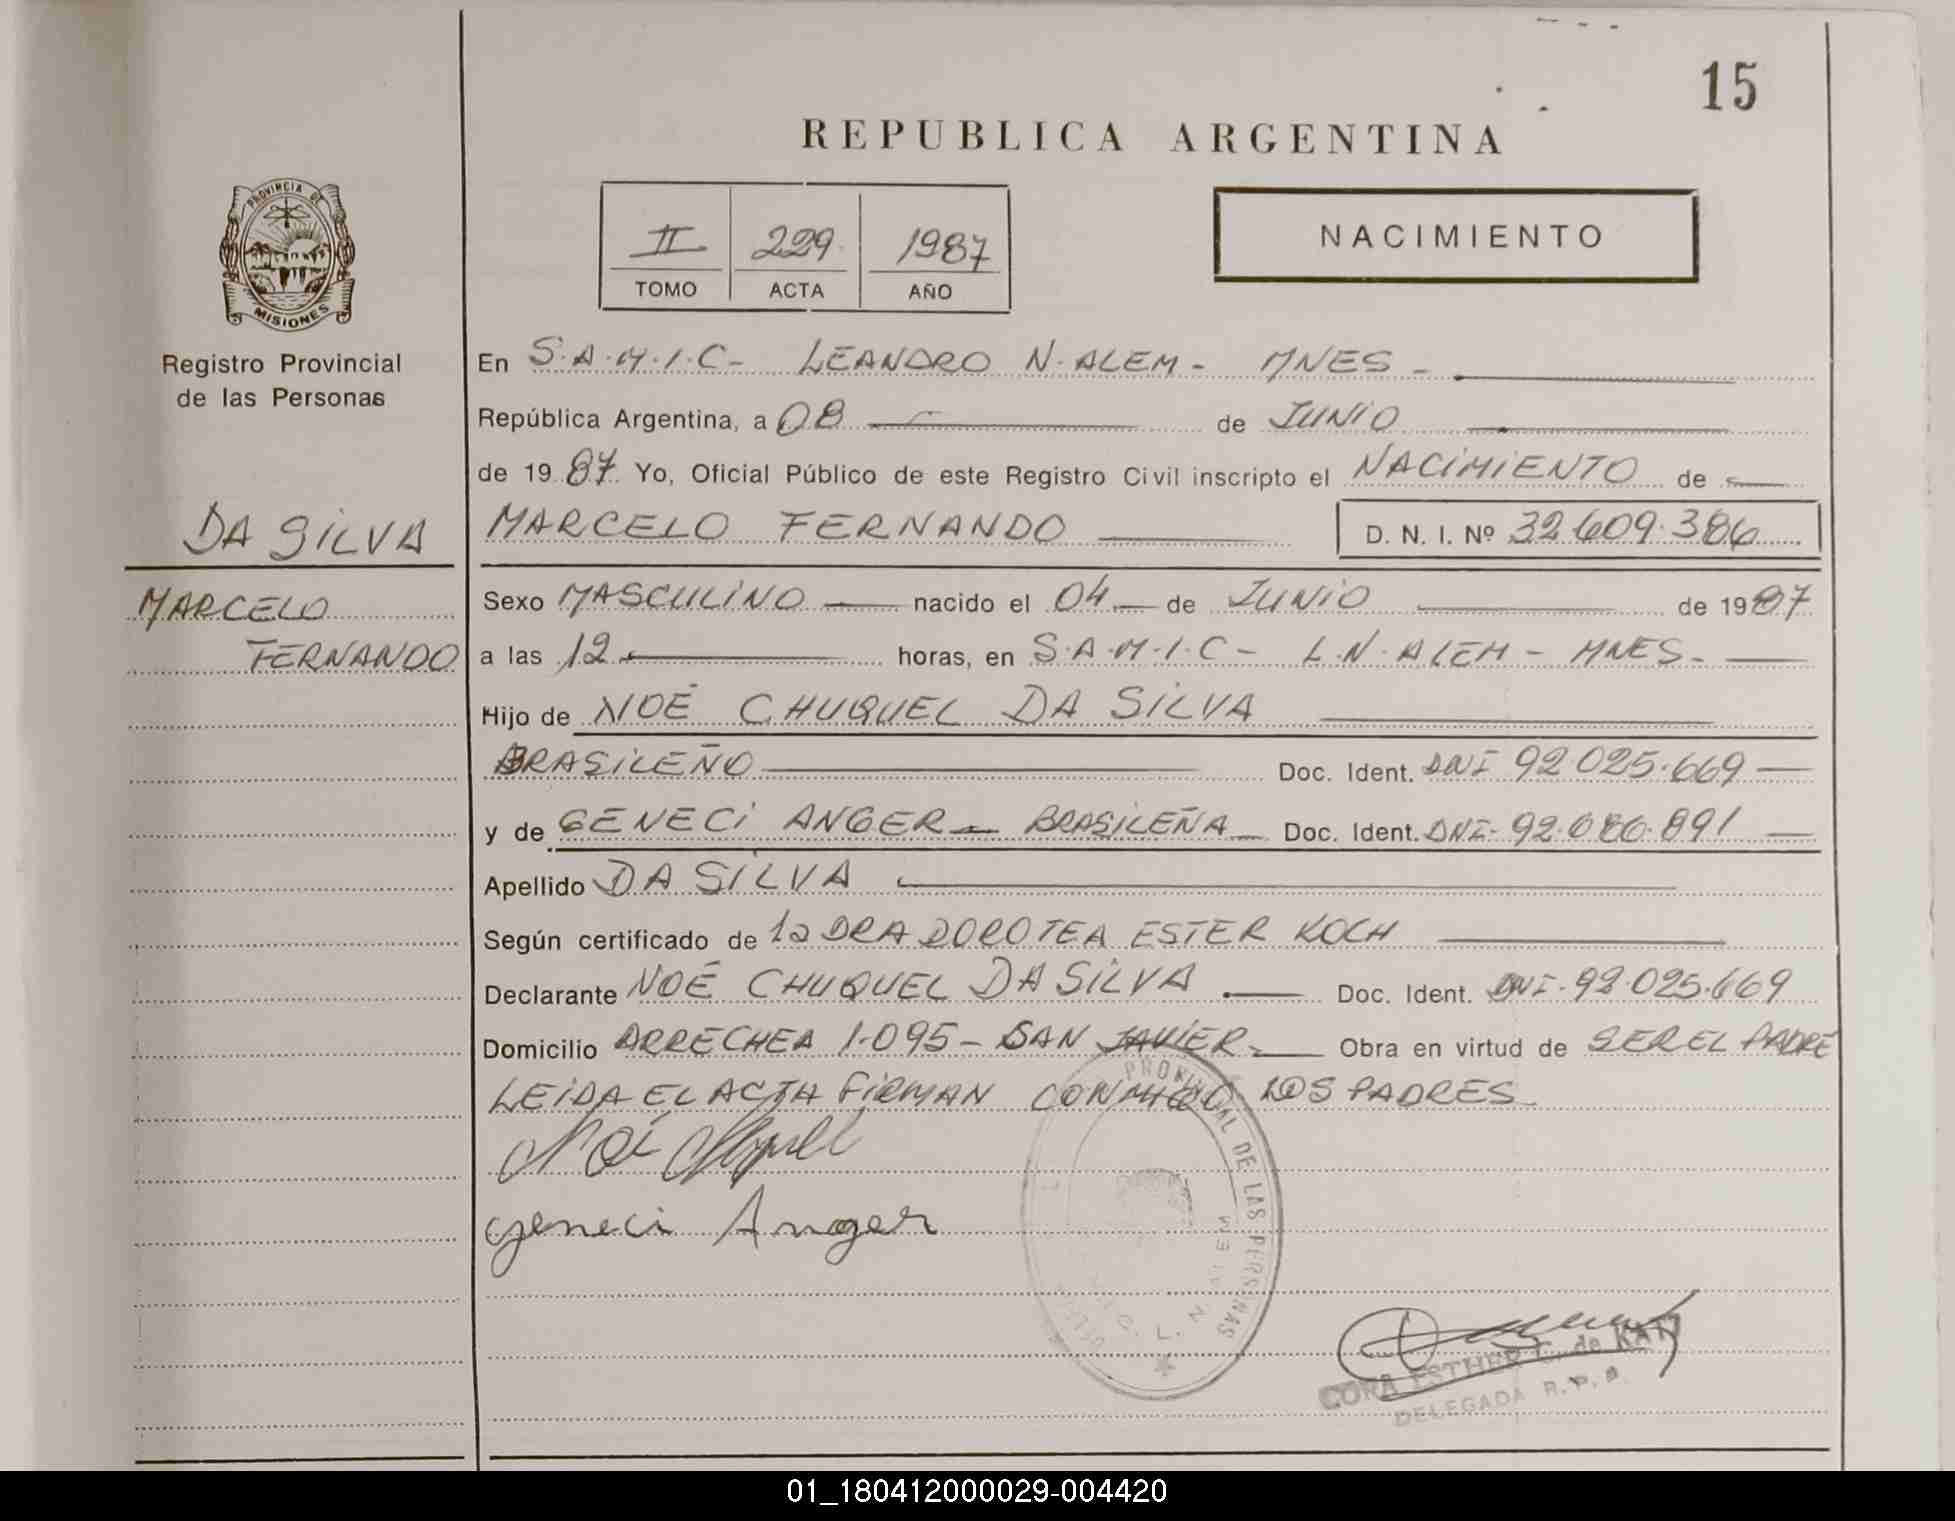 15
REPUBLICA ARGENTINA
PROVINCIA DE
MISIONES
Registro Provincial
de las Personas
II 229 1987
TOMO ACTA AÑO
NACIMIENTO
En S.A.M.I.C- LEANDRO N.ALEM- MNES-
República Argentina, a 08 de JUNIO
de 1987 Yo, Oficial Público de este Registro Civil inscripto el NACIMIENTO de
DA SILVA
MARCELO FERNANDO D. N. I. Nº 32.609.386
MARCELO
FERNANDO
Sexo MASCULINO nacido el 04 de JUNIO de 1987
a las 12 horas, en S.A.M.I.C- L.N.ALEM- MNES-
Hijo de NOÉ CHUQUEL DA SILVA
BRASILEÑO Doc. Ident. DNI 92 025.669
y de GENECI ANGER BRASILEÑA Doc. Ident. DNI-92.086.891
Apellido DA SILVA
Según certificado de la DRA DOROTEA ESTER KOCH
Declarante NOÉ CHUQUEL DA SILVA Doc. Ident. DNI-92.025.669
Domicilio ARRECHEA 1.095- SAN JAVIER- Obra en virtud de SER EL PADRE
LEIDA EL ACTA FIRMAN CONMIGO LOS PADRES
Geneci Anger
PROVINCIAL DE LAS PERSONAS
CORA ESTHER de KATZ
DELEGADA R.P.P.
01_180412000029-004420